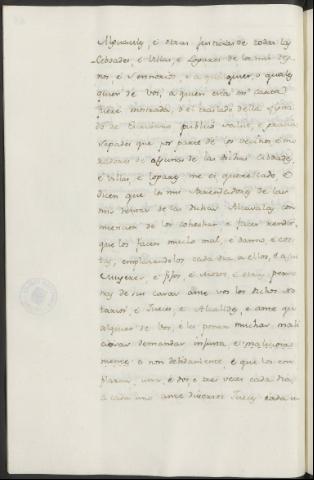 Alguaciles, é otras Justicias de todas las
Cibdades, é Villas, é Logares de los mis Reg-
nos, é Sennorios, é a qual quier, o quales
quier de Vos, a quien esta mi carta
fuere mostrada, o el traslado della signa-
do de Escrivano publico, salud, é gracia
sepades que por parte de los vecinos é mo-
radores de algunas de las dichas Cibdades,
é Villas, é logares me es querellado, é
dicen que los mis Arrendadores de las
mis rentas de las dichas Alcavalas con
intencion de los cohechar é facer rendir,
que los facen mucho mal, é danno, é cos-
tas, emplazandolos cada dia a ellos, é a sus
Mugeres, é fijos, é mozos, é otras perso-
nas de sus casas ante vos los dichos No-
tarios, é Jueces, é Alcaldes, é ante qu-
alquier de Vos, é les ponen muchas mali-
ciosas demandas injusta, é maliciosa-
mente, é non debidamente, é que los em-
plazan, una, é dos, é tres veces cada dia,
á cada uno ante diversos Jueces cada u-